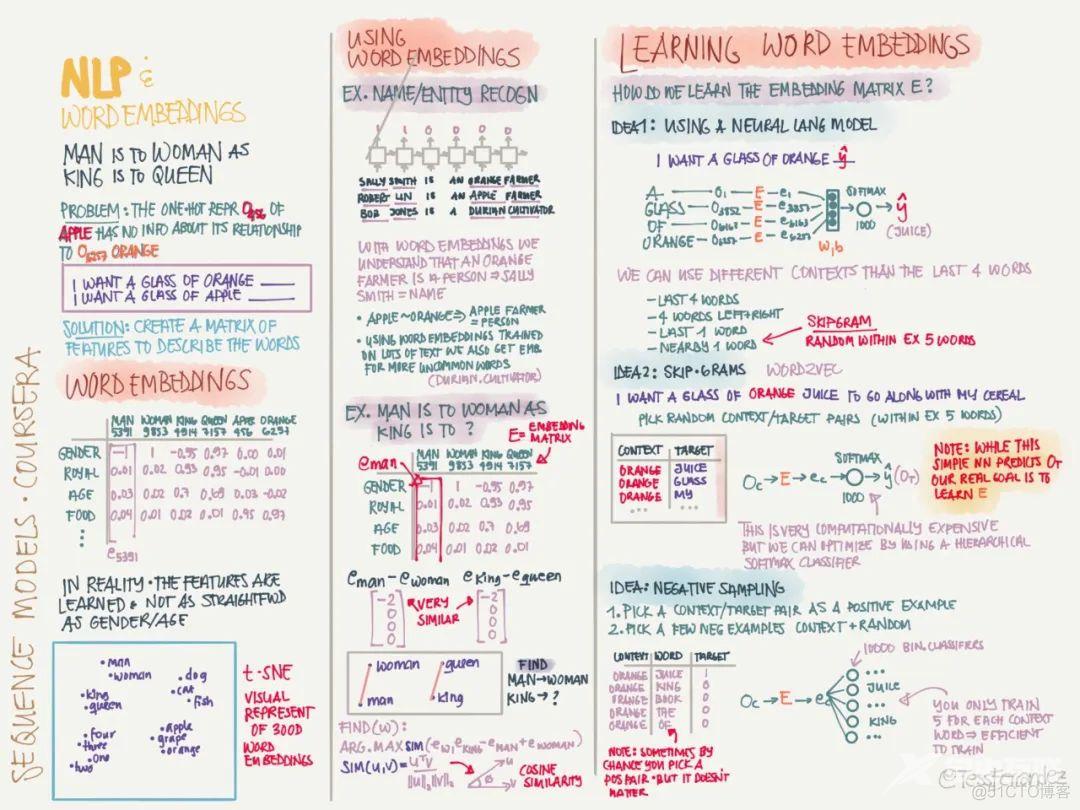 SEQUENCE MODELS · COURSERA
NLP &
WORD EMBEDDINGS
MAN IS TO WOMAN AS
KING IS TO QUEEN
PROBLEM: THE ONE-HOT REPR O456 OF
APPLE HAS NO INFO ABOUT ITS RELATIONSHIP
TO O6257 ORANGE
I WANT A GLASS OF ORANGE ____
I WANT A GLASS OF APPLE ____
SOLUTION: CREATE A MATRIX OF
FEATURES TO DESCRIBE THE WORDS
WORD EMBEDDINGS
MAN WOMAN KING QUEEN APPLE ORANGE
5391 9853 4914 7157 456 6257
GENDER -1 1 -0.95 0.97 0.00 0.01
ROYAL 0.01 0.02 0.93 0.95 -0.01 0.00
AGE 0.03 0.02 0.7 0.69 0.03 -0.02
FOOD 0.04 0.01 0.02 0.01 0.95 0.97
e5391
IN REALITY · THE FEATURES ARE
LEARNED & NOT AS STRAIGHTFWD
AS GENDER/AGE
man
woman
dog
cat
fish
king
queen
four
three
one
two
apple
grape
orange
t-SNE
VISUAL
REPRESENT
OF 300D
WORD
EMBEDDINGS
USING
WORD EMBEDDINGS
EX. NAME/ENTITY RECOGN
1 1 0 0 0 0
SALLY SMITH IS AN ORANGE FARMER
ROBERT LIN IS AN APPLE FARMER
BOB JONES IS A DURIAN CULTIVATOR
WITH WORD EMBEDDINGS WE
UNDERSTAND THAT AN ORANGE
FARMER IS A PERSON ⇒ SALLY
SMITH = NAME
• APPLE ~ ORANGE ⇒ APPLE FARMER
= PERSON
• USING WORD EMBEDDINGS TRAINED
ON LOTS OF TEXT WE ALSO GET EMB
FOR MORE UNCOMMON WORDS
(DURIAN, CULTIVATOR)
EX. MAN IS TO WOMAN AS
KING IS TO ?
E = EMBEDDING
MATRIX
eman
MAN WOMAN KING QUEEN
5391 9853 4914 7157
GENDER -1 1 -0.95 0.97
ROYAL 0.01 0.02 0.93 0.95
AGE 0.03 0.02 0.7 0.69
FOOD 0.04 0.01 0.02 0.01
eman - ewoman eking - equeen
[-2 0 0 0] VERY SIMILAR [-2 0 0 0]
woman
man
queen
king
FIND
MAN → WOMAN
KING → ?
FIND(W):
ARG.MAX SIM(ew, eKING - eMAN + eWOMAN)
SIM(U,V) = UᵀV / ||U||2 ||V||2
u
v
ø
COSINE
SIMILARITY
LEARNING WORD EMBEDDINGS
HOW DO WE LEARN THE EMBEDDING MATRIX E?
IDEA1: USING A NEURAL LANG MODEL
I WANT A GLASS OF ORANGE ŷ
A O1 E e1
GLASS O3852 E e3852
OF O6163 E e6163
ORANGE O6257 E e6257
W,b
SOFTMAX
1000
ŷ
(JUICE)
WE CAN USE DIFFERENT CONTEXTS THAN THE LAST 4 WORDS
- LAST 4 WORDS
- 4 WORDS LEFT & RIGHT
- LAST 1 WORD
- NEARBY 1 WORD
SKIPGRAM
RANDOM WITHIN EX 5 WORDS
IDEA2: SKIP-GRAMS WORD2VEC
I WANT A GLASS OF ORANGE JUICE TO GO ALONG WITH MY CEREAL
PICK RANDOM CONTEXT/TARGET PAIRS (WITHIN EX 5 WORDS)
CONTEXT TARGET
ORANGE JUICE
ORANGE GLASS
ORANGE MY
... ...
Oc → E → ec → ŷ (OT)
SOFTMAX
1000
NOTE: WHILE THIS
SIMPLE NN PREDICTS OT
OUR REAL GOAL IS TO
LEARN E
THIS IS VERY COMPUTATIONALLY EXPENSIVE
BUT WE CAN OPTIMIZE BY USING A HIERARCHICAL
SOFTMAX CLASSIFIER
IDEA: NEGATIVE SAMPLING
1. PICK A CONTEXT/TARGET PAIR AS A POSITIVE EXAMPLE
2. PICK A FEW NEG EXAMPLES CONTEXT + RANDOM
CONTEXT WORD TARGET
ORANGE JUICE 1
ORANGE KING 0
ORANGE BOOK 0
ORANGE THE 0
ORANGE OF 0
NOTE: SOMETIMES BY
CHANCE YOU PICK A
POS PAIR · BUT IT DOESN'T
MATTER
Oc → E → e
10000 BIN.CLASSIFIERS
...
JUICE
...
KING
...
YOU ONLY TRAIN
5 FOR EACH CONTEXT
WORD ⇒ EFFICIENT
TO TRAIN
@Tessferrandez
@51CTO博客